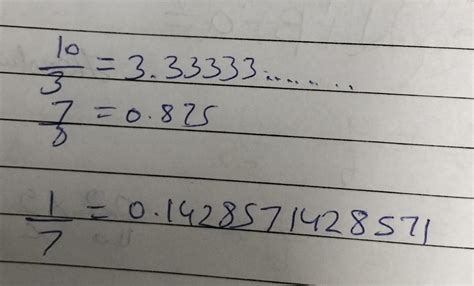 10/3 = 3.33333........
7/8 = 0.825
1/7 = 0.1428571428571